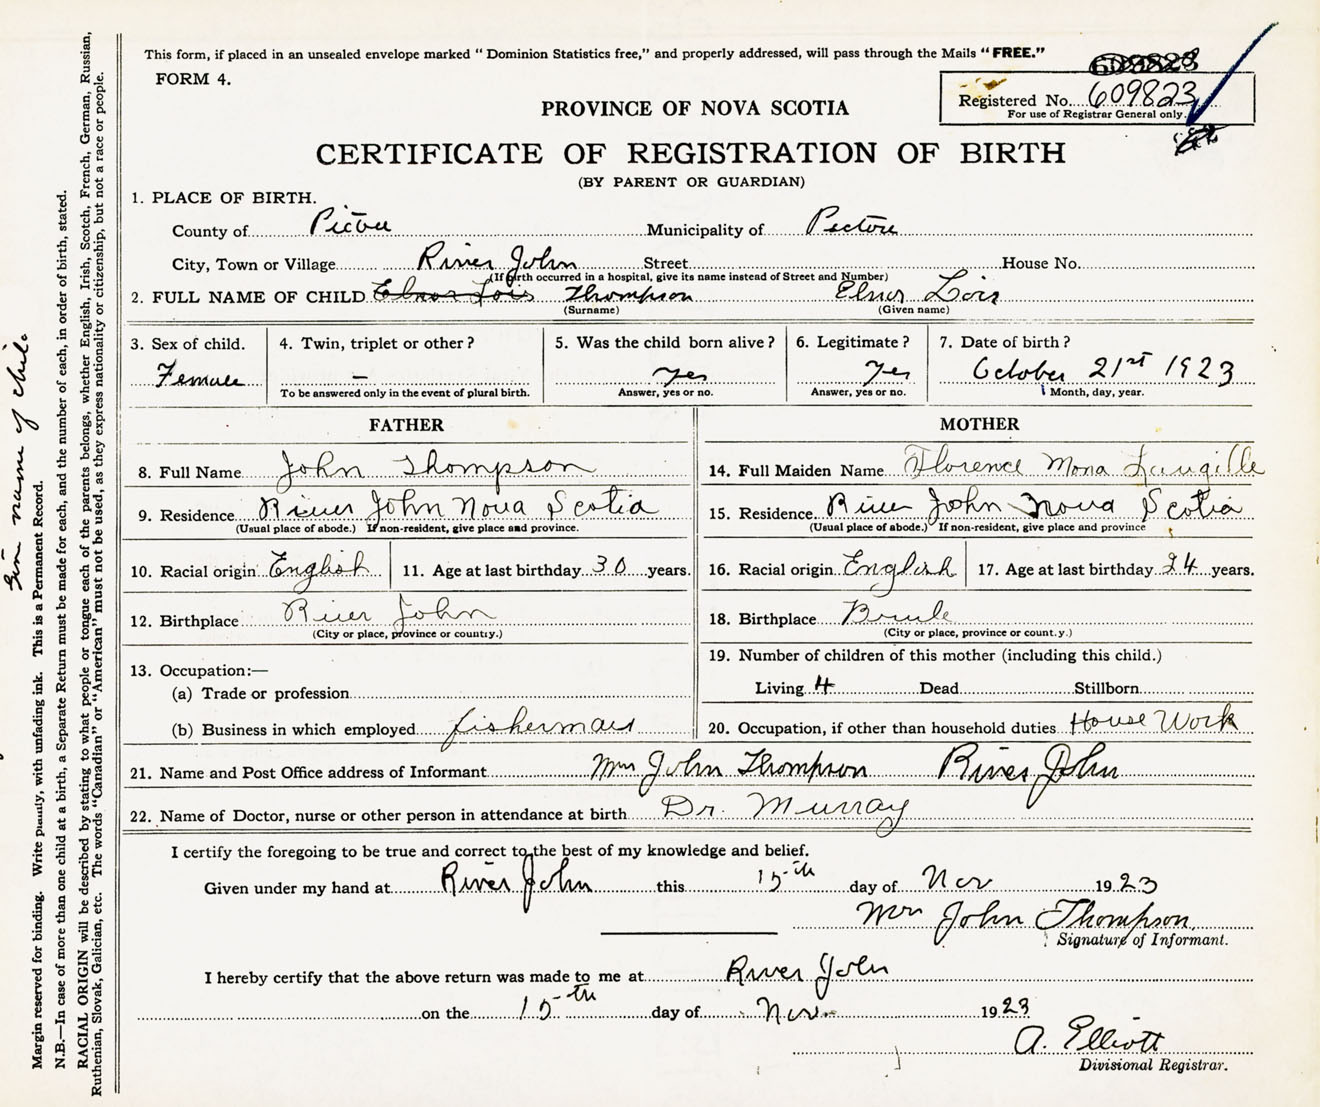 This form, if placed in an unsealed envelope marked "Dominion Statistics free," and properly addressed, will pass through the Mails "FREE."
FORM 4.
609823
Registered No. 609823
For use of Registrar General only.
PROVINCE OF NOVA SCOTIA
CERTIFICATE OF REGISTRATION OF BIRTH
(BY PARENT OR GUARDIAN)
1. PLACE OF BIRTH.
County of Pictou Municipality of Pictou
City, Town or Village River John Street House No.
(If birth occurred in a hospital, give its name instead of Street and Number)
2. FULL NAME OF CHILD Elnor Lois Thompson Elnor Lois
(Surname) (Given name)
3. Sex of child. 4. Twin, triplet or other? 5. Was the child born alive? 6. Legitimate? 7. Date of birth?
Female — yes yes October 21st 1923
To be answered only in the event of plural birth. Answer, yes or no. Answer, yes or no. Month, day, year.
FATHER MOTHER
8. Full Name John Thompson 14. Full Maiden Name Florence Mona Langille
9. Residence River John Nova Scotia 15. Residence River John Nova Scotia
(Usual place of abode.) If non-resident, give place and province. (Usual place of abode.) If non-resident, give place and province
10. Racial origin English 11. Age at last birthday 30 years. 16. Racial origin English 17. Age at last birthday 24 years.
12. Birthplace River John 18. Birthplace Brule
(City or place, province or country.) (City or place, province or count.y.)
13. Occupation:— 19. Number of children of this mother (including this child.)
(a) Trade or profession Living 4 Dead Stillborn
(b) Business in which employed fisherman 20. Occupation, if other than household duties House Work
21. Name and Post Office address of Informant Mrs John Thompson River John
22. Name of Doctor, nurse or other person in attendance at birth Dr. Murray
I certify the foregoing to be true and correct to the best of my knowledge and belief.
Given under my hand at River John this 15th day of Nov 1923
Mrs John Thompson
Signature of Informant.
I hereby certify that the above return was made to me at River John
on the 15th day of Nov 1923
A. Elliott
Divisional Registrar.
name of child
Margin reserved for binding. Write plainly, with unfading ink. This is a Permanent Record.
N.B.—In case of more than one child at a birth, a Separate Return must be made for each, and the number of each, in order of birth, stated.
RACIAL ORIGIN will be described by stating to what people or tongue each of the parents belongs, whether English, Irish, Scotch, French, German, Russian,
Ruthenian, Slovak, Galician, etc. The words "Canadian" or "American" must not be used, as they express nationality or citizenship, but not a race or people.